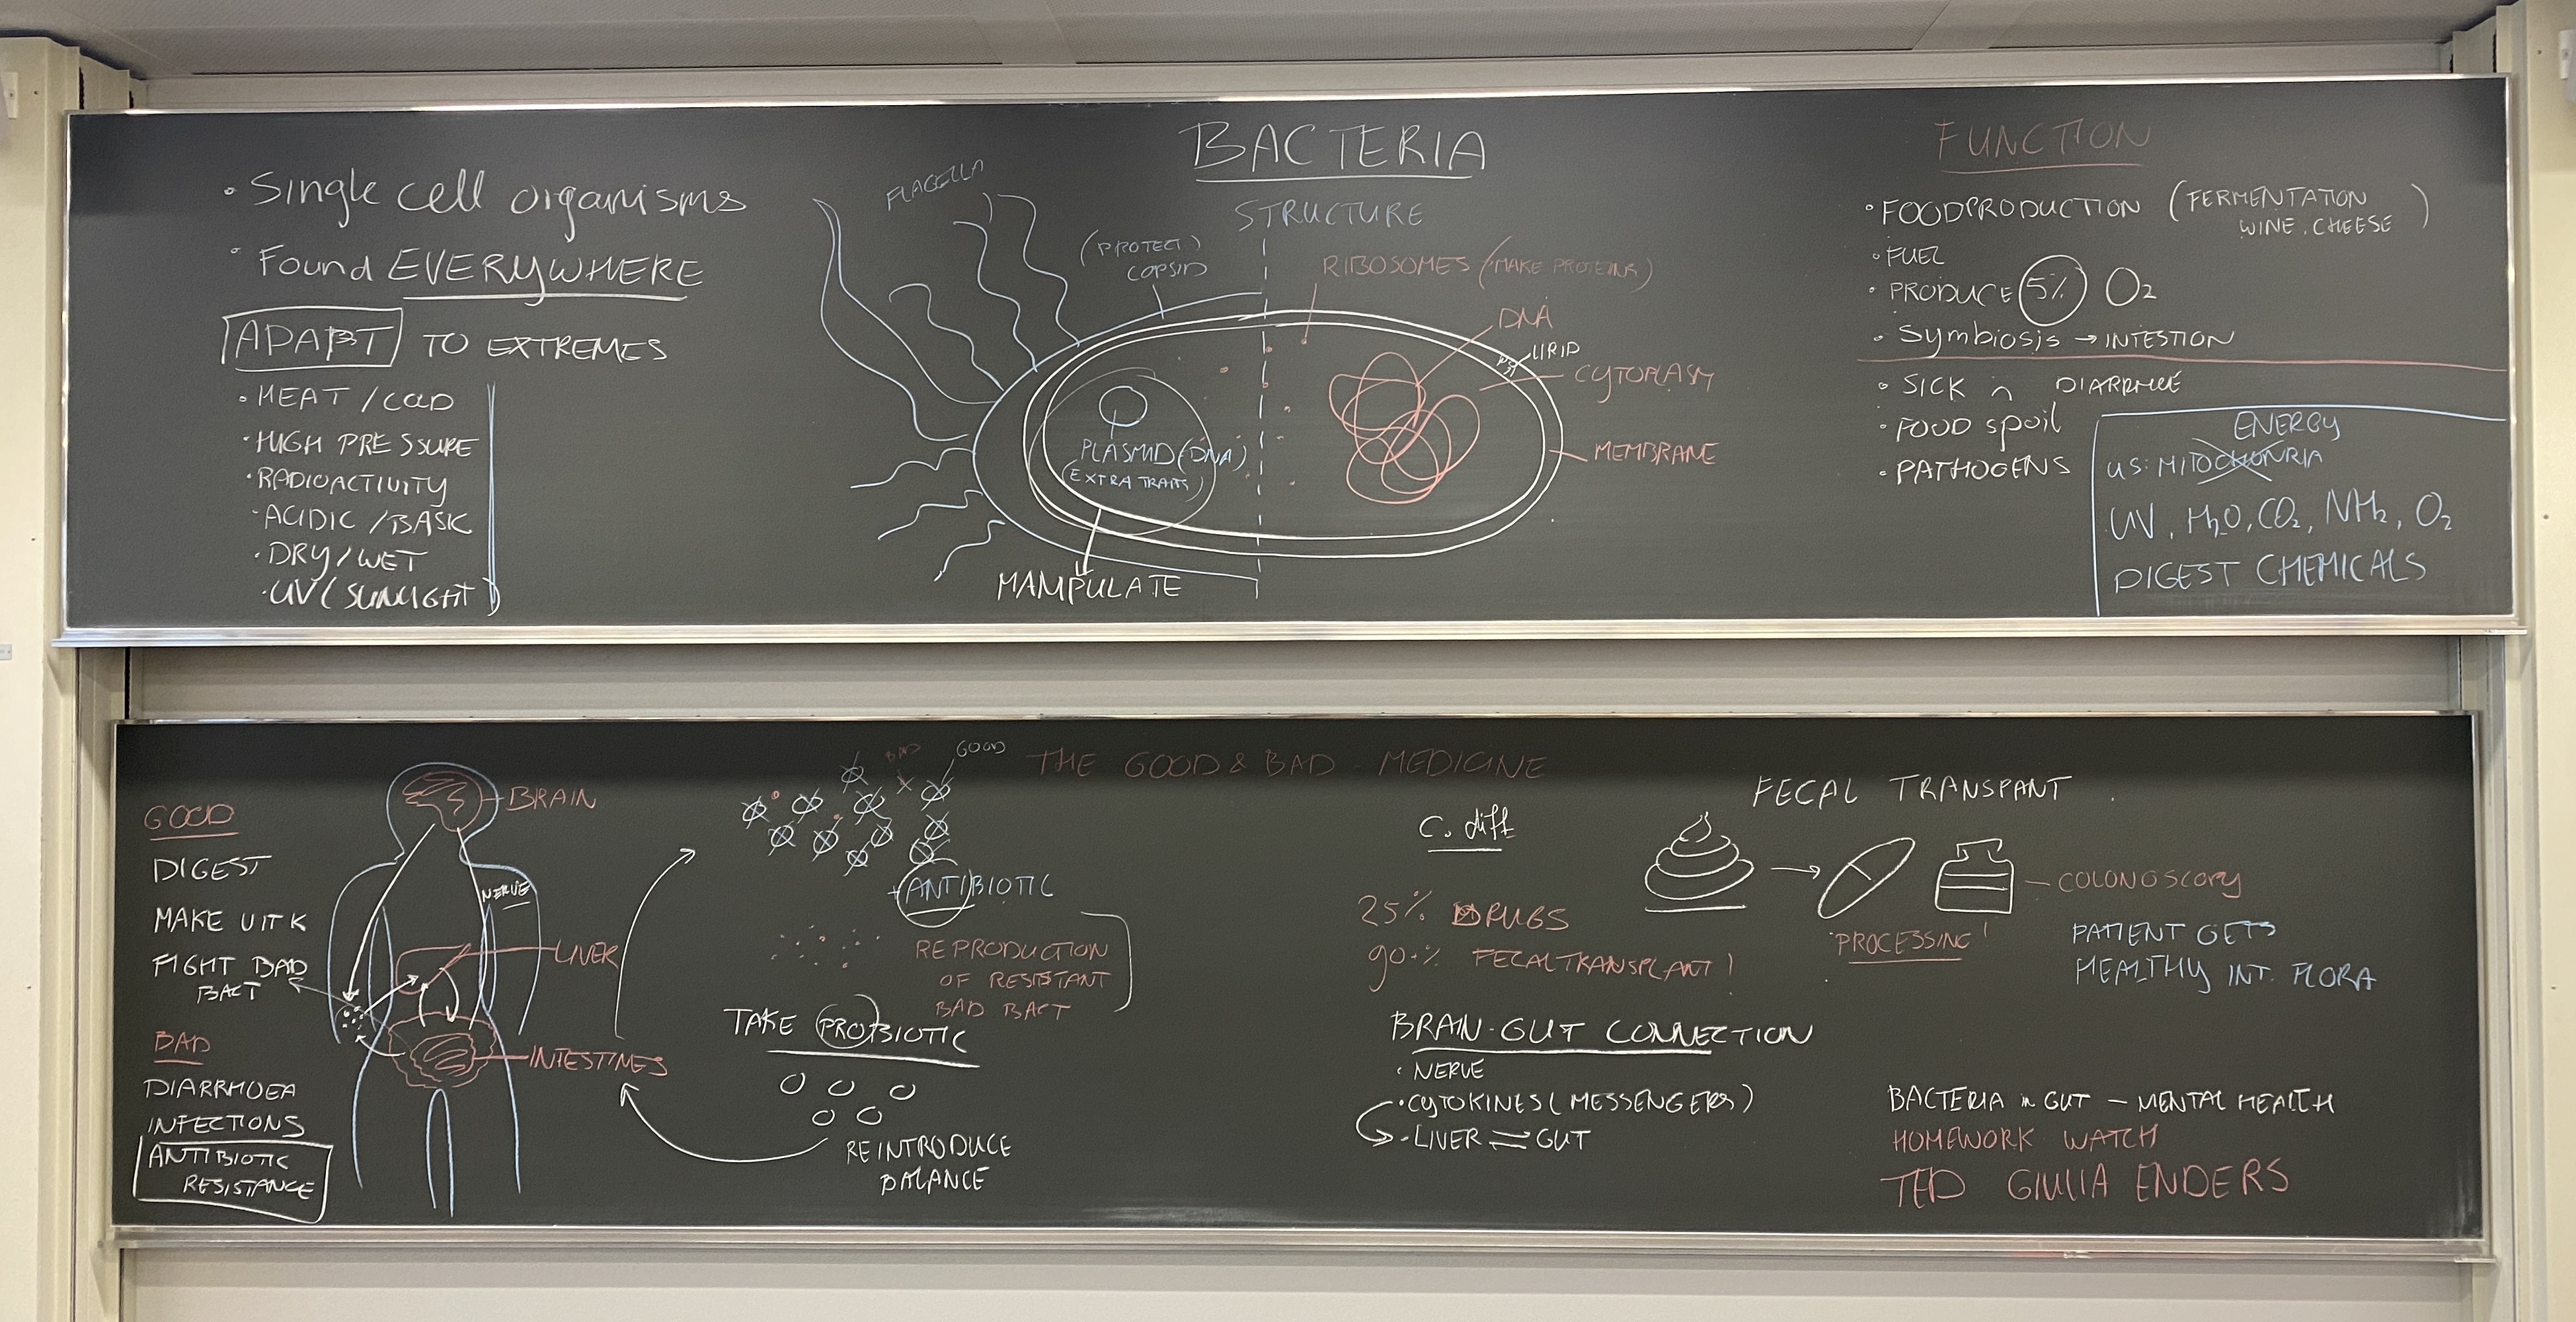 BACTERIA
• Single cell organisms
• Found EVERYWHERE
ADAPT TO EXTREMES
• HEAT / COLD
• HIGH PRESSURE
• RADIOACTIVITY
• ACIDIC / BASIC
• DRY / WET
• UV (SUNLIGHT)
STRUCTURE
FLAGELLA
(PROTECT)
CAPSID
RIBOSOMES (MAKE PROTEINS)
DNA
LIPID
CYTOPLASM
MEMBRANE
PLASMID (DNA)
(EXTRA TRAITS)
MAMPULATE
FUNCTION
• FOODPRODUCTION (FERMENTATION
WINE, CHEESE)
• FUEL
• PRODUCE 5% O₂
• Symbiosis → INTESTION
• SICK ∩ DIARRHEE
• FOOD spoil
• PATHOGENS
ENERGY
US: MITOCHONRIA
UV, H₂O, CO₂, NH₂, O₂
DIGEST CHEMICALS
THE GOOD & BAD - MEDICINE
GOOD
DIGEST
MAKE VIT K
FIGHT BAD
BACT
BAD
DIARRHOEA
INFECTIONS
ANTIBIOTIC
RESISTANCE
BRAIN
NERVE
LIVER
INTESTINES
BAD
GOOD
+ ANTIBIOTIC
REPRODUCTION
OF RESISTANT
BAD BACT
TAKE PROBIOTIC
REINTRODUCE
BALANCE
C. diff
25% DRUGS
90% FECALTRANSPLANT!
FECAL TRANSPANT
"PROCESSING"
COLONOSCOPY
PATIENT GETS
HEALTHY INT. FLORA
BRAIN-GUT CONNECTION
• NERVE
• CYTOKINES (MESSENGERS)
• LIVER ⇌ GUT
BACTERIA in GUT – MENTAL HEALTH
HOMEWORK WATCH
TED GIULIA ENDERS